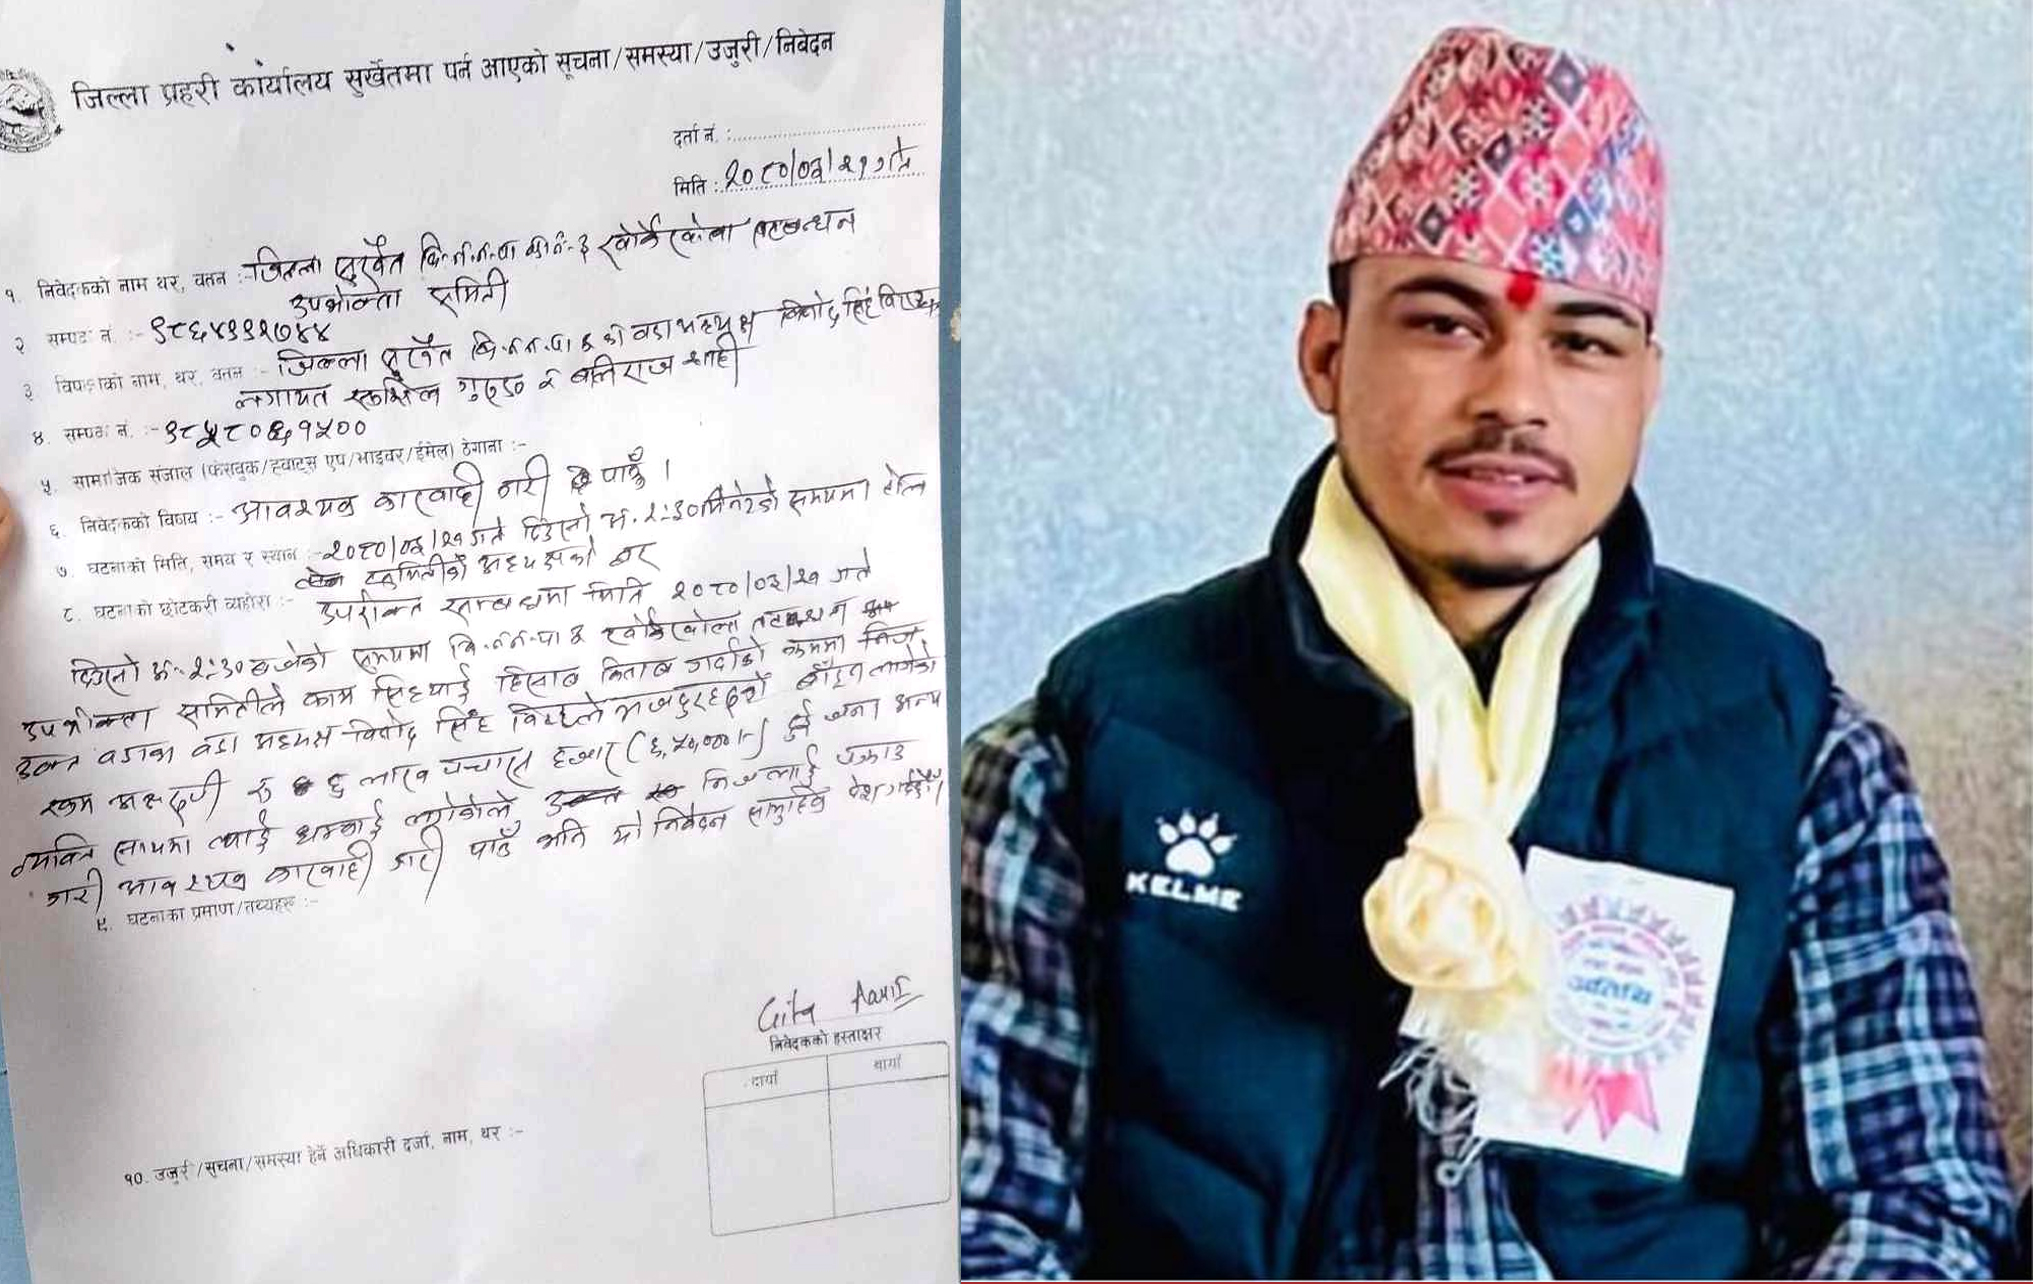 जिल्ला प्रहरी कार्यालय सुर्खेतमा पर्न आएको सूचना/समस्या/उजुरी/निवेदन
दर्ता नं. :
मिति : २०८०/०३/२१ गते
१. निवेदकको नाम थर, वतन :- जिल्ला सुर्खेत वि.न.न.पा वडा नं-३ खोर्केखोला तटबन्धन
उपभोक्ता समिती
२ सम्पर्क नं. :- ९८६४९९२७४४
३ विपक्षको नाम, थर, वतन :- जिल्ला सुर्खेत वि.न.न.पा ३ को वडा अध्यक्ष विनोद सिंह
लगायत गुरुङ र बलिराज शाही
४. सम्पर्क नं. :- ९८५८०६१५००
५. सामाजिक संजाल (फेसबुक/ह्वाट्स एप/भाइवर/ईमेल) ठेगाना :-
६. निवेदकको विषय :- आवश्यक कारवाही गरी पाउँ ।
७. घटनाको मिति, समय र स्थान :- २०८०/०३/२१ गते दिउँसो अं. २:३० मिनेटको समयमा
समितीको अध्यक्षको घर
८. घटनाको छोटकरी व्यहोरा :- उपरोक्त सम्बन्धमा मिति २०८०/०३/२१ गते
दिउँसो अं. २:३० बजेको समयमा वि.न.न.पा ३ खोर्केखोला तटबन्धन
उपभोक्ता समितीले काम सिध्याई हिसाब किताब गर्दाको क्रममा निज
उक्त वडाका वडा अध्यक्ष विनोद सिंह विष्टले मजदुरहरुको बाँड्न लागेको
रकम रु ६ लाख पचास हजार (६,५०,०००।-) दुई जना अन्य
व्यक्ति साथमा ल्याई धम्काई लगेकोले निजलाई पक्राउ
गरी आवश्यक कारवाही गरी पाउँ भनि यो निवेदन सामुहिक पेश गर्दछौँ।
९. घटनाका प्रमाण/तथ्यहरु :-
Gita
निवेदकको हस्ताक्षर
दायाँ बायाँ
१०. उजुरी/सूचना/समस्या हेर्ने अधिकारी दर्जा, नाम, थर :-
KELME
अतिथि